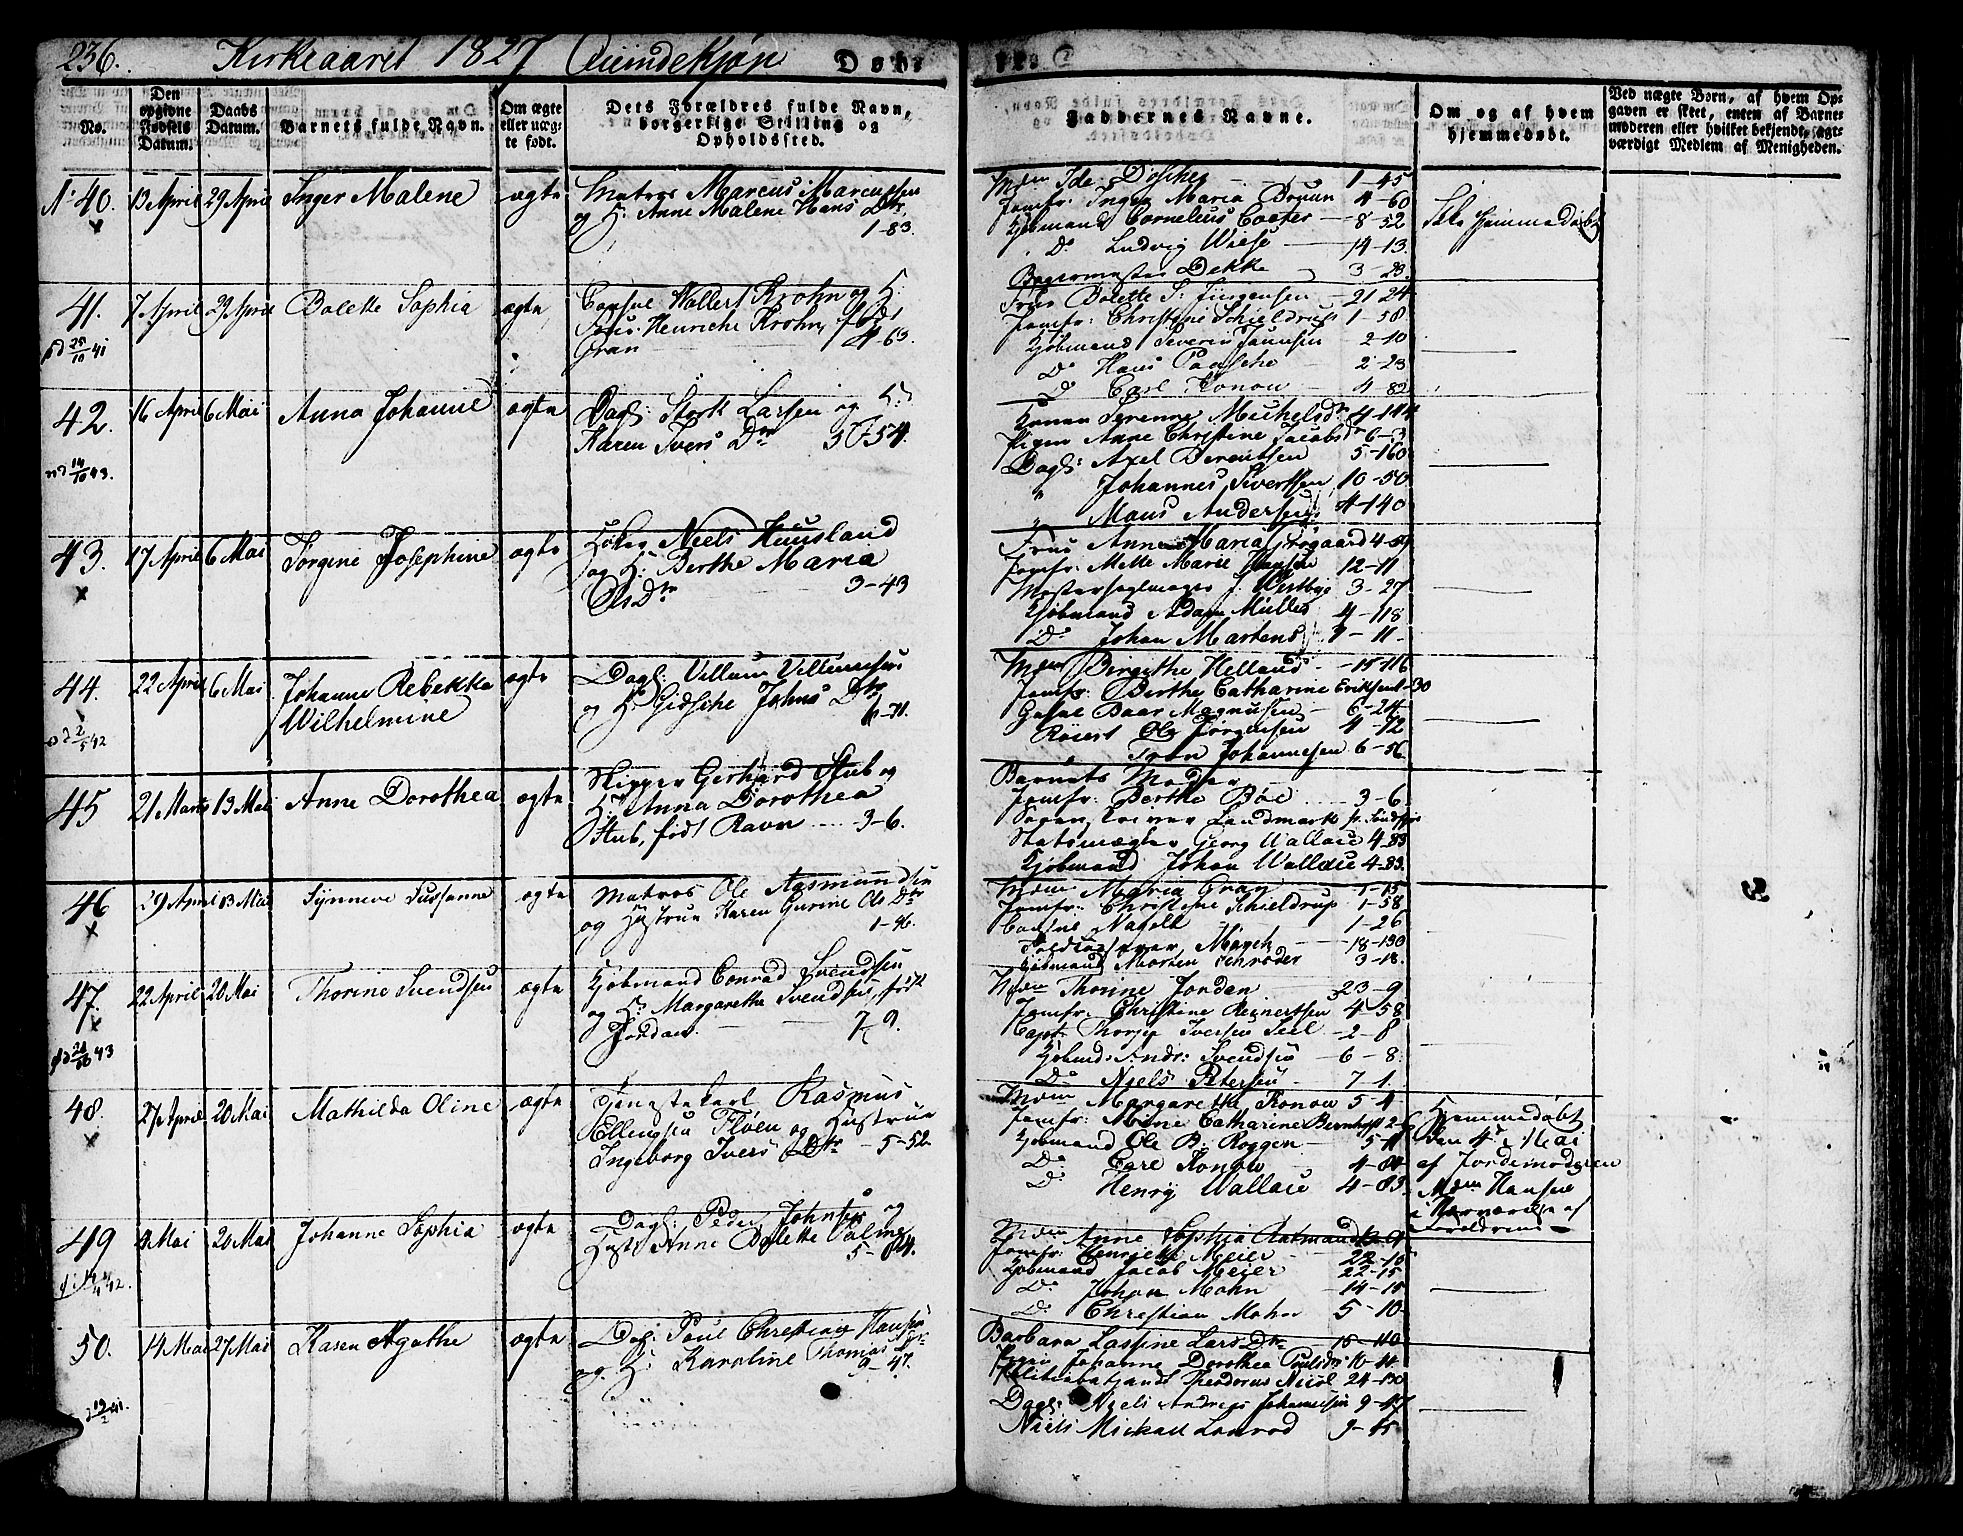 236. Kirkeaaret 1827 Qvindekjøn Døbte
No.
Den opgivne Fødsels Datum.
Daabs Datum.
Barnets fulde Navn.
Om ægte eller uægte født.
Dets Forældres fulde Navn, borgerlige Stilling og Opholdssted.
Faddernes Navne.
Om og af hvem hjemmedøbt.
Ved uægte Børn, af hvem Opgaven er skeet, enten af Barnemoderen eller hvilket bekjendt, agtværdigt Medlem af Menigheden.
No 40. 13 April 29 April Inger Malene ægte Matros Marcus Marcussen
og H: Anne Malene Hans Dtr,
1-83.
Mdm Ide Döscher 1-45
Jomfr: Inger Maria Bruun 4-60
Kjøbmand Cornelius 8-52
Do Ludvig Wiese 14-13
Bagermester Dekke 3-23.
Ikke Hjemmedøbt
41. 7 April 29 April Bolette Sophia ægte Consul Wollert Krohn og H:
Henriche Krohn, født
Gran 4-63.
Frue Bolette S: Jürgensen 21-24
Jomfr: Christine Schieldrup 1-58
Kjøbmand Severin Jansen 2-10
Do Hans Paasche 2-23
Do Carl Konow 4-82
42. 16 April 6 Mai Anna Johanne ægte Dagl: Stork Larsen og H:
Karen Ivers Dtr 30-54.
Konen Serenne Michelsdr 4-144
Pigen Anne Christine Jacobsdr 6-3
Dagl: Axel Berentsen 5-160
" Johannes Sivertsen 10-50
Mans Andersen 4-140
43. 17 April 6 Mai Jørgine Josephine ægte Høker Niels Huusland
og H: Berthe Maria
Ols Dtr 3-43
Frue Anne Maria 4-
Jomfr: Mette Marie Hansen 12-11
J. Westbye 3-27
Kjøbmand Adam Müller 4-118
Do Johan Martens 7-11
44. 22 April 6 Mai Johanne Rebekka
Wilhelmine ægte Dagl: Villum Villumsen
og H: Gidsche Johns Dtr
6-71.
Mdm Birgithe Helland 15-116
Jomfr: Berthe Catharine Eriksen 1-30
Baar Magnusen 6-24
Ole Jørgensen 4-12
Johannesen 6-56
45 21 Marts 13 Mai Anne Dorothea ægte Skipper Gerhard Stub og
H: Anna Dorothea
Stub, født Ravn 3-6.
Barnets Moder
Jomfr: Berthe Böe 3-6
Landmark
Georg Wallace 4-83
Kjøbmand Johan Wallace 4-83.
46 29 April 13 Mai Synneve Susanne ægte Matros Ole Aasmundsen
og Hustrue Karen Gurine Ols Dtr
1-96.
Mdm Maria Gran 1-15
Jomfr: Christine Schieldrup 1-58
Consul Nagell 1-26
18-130
Kjøbmand Morten Schrøder 3-18.
47. 22 April 20 Mai Thorine Svendsen ægte Kjøbmand Conrad Svendsen
og H: Margarethe Svendsen, født
Jordan. 7-9.
Mdm Thorine Jordan 23-9
Jomfr: Christine Reinertsen 4-58
Capt: Iversen 2-8
Kjøbmd: Andr: Svendsen 6-8.
Do Niels Petersen 7-1.
48. 27 April 20 Mai Mathilda Oline ægte Tjenestekarl Rasmus
Ellingsen Fløen og Hustrue
Ingeborg Ivers Dtr 5-52
Mdm Margarethe Konow 5-4
Jomfr: Mine Catharine
Kjøbmand Ole B: Roggen 5-11
Do Carl Konow 4-84
Do Henry Wallace 4-83.
Hjemmedøbt
den 4de Mai
af Jordemoderen
Mdm Hansen
i Nærværelse af
Forældrene
49 Mai 20 Mai Johanne Sophia ægte Dagl: Peder Johnsen og
Hust: Anne Bolette
5-84.
Mdm Anne Sophia
Jomfr: Henriette Meier 22-15
Kjøbmand Jacob Meier 22-15
Do Johan Mohn 14-15
Do Christian Mohn 5-10
50. 14 Mai 27 Mai Karen Agathe ægte Dagl: Poul Christian Hansen
og H: Karoline Thomas Dtr
9-47.
Barbara Lassine Lars Dtr 18-110
Pigen Johanne Dorothea Poulsdr 16-44
Theodorus Nicol 24-130
Dagl: Niels Andreas Johannesen 9-47
Niels Mickael Lonrod 9-45